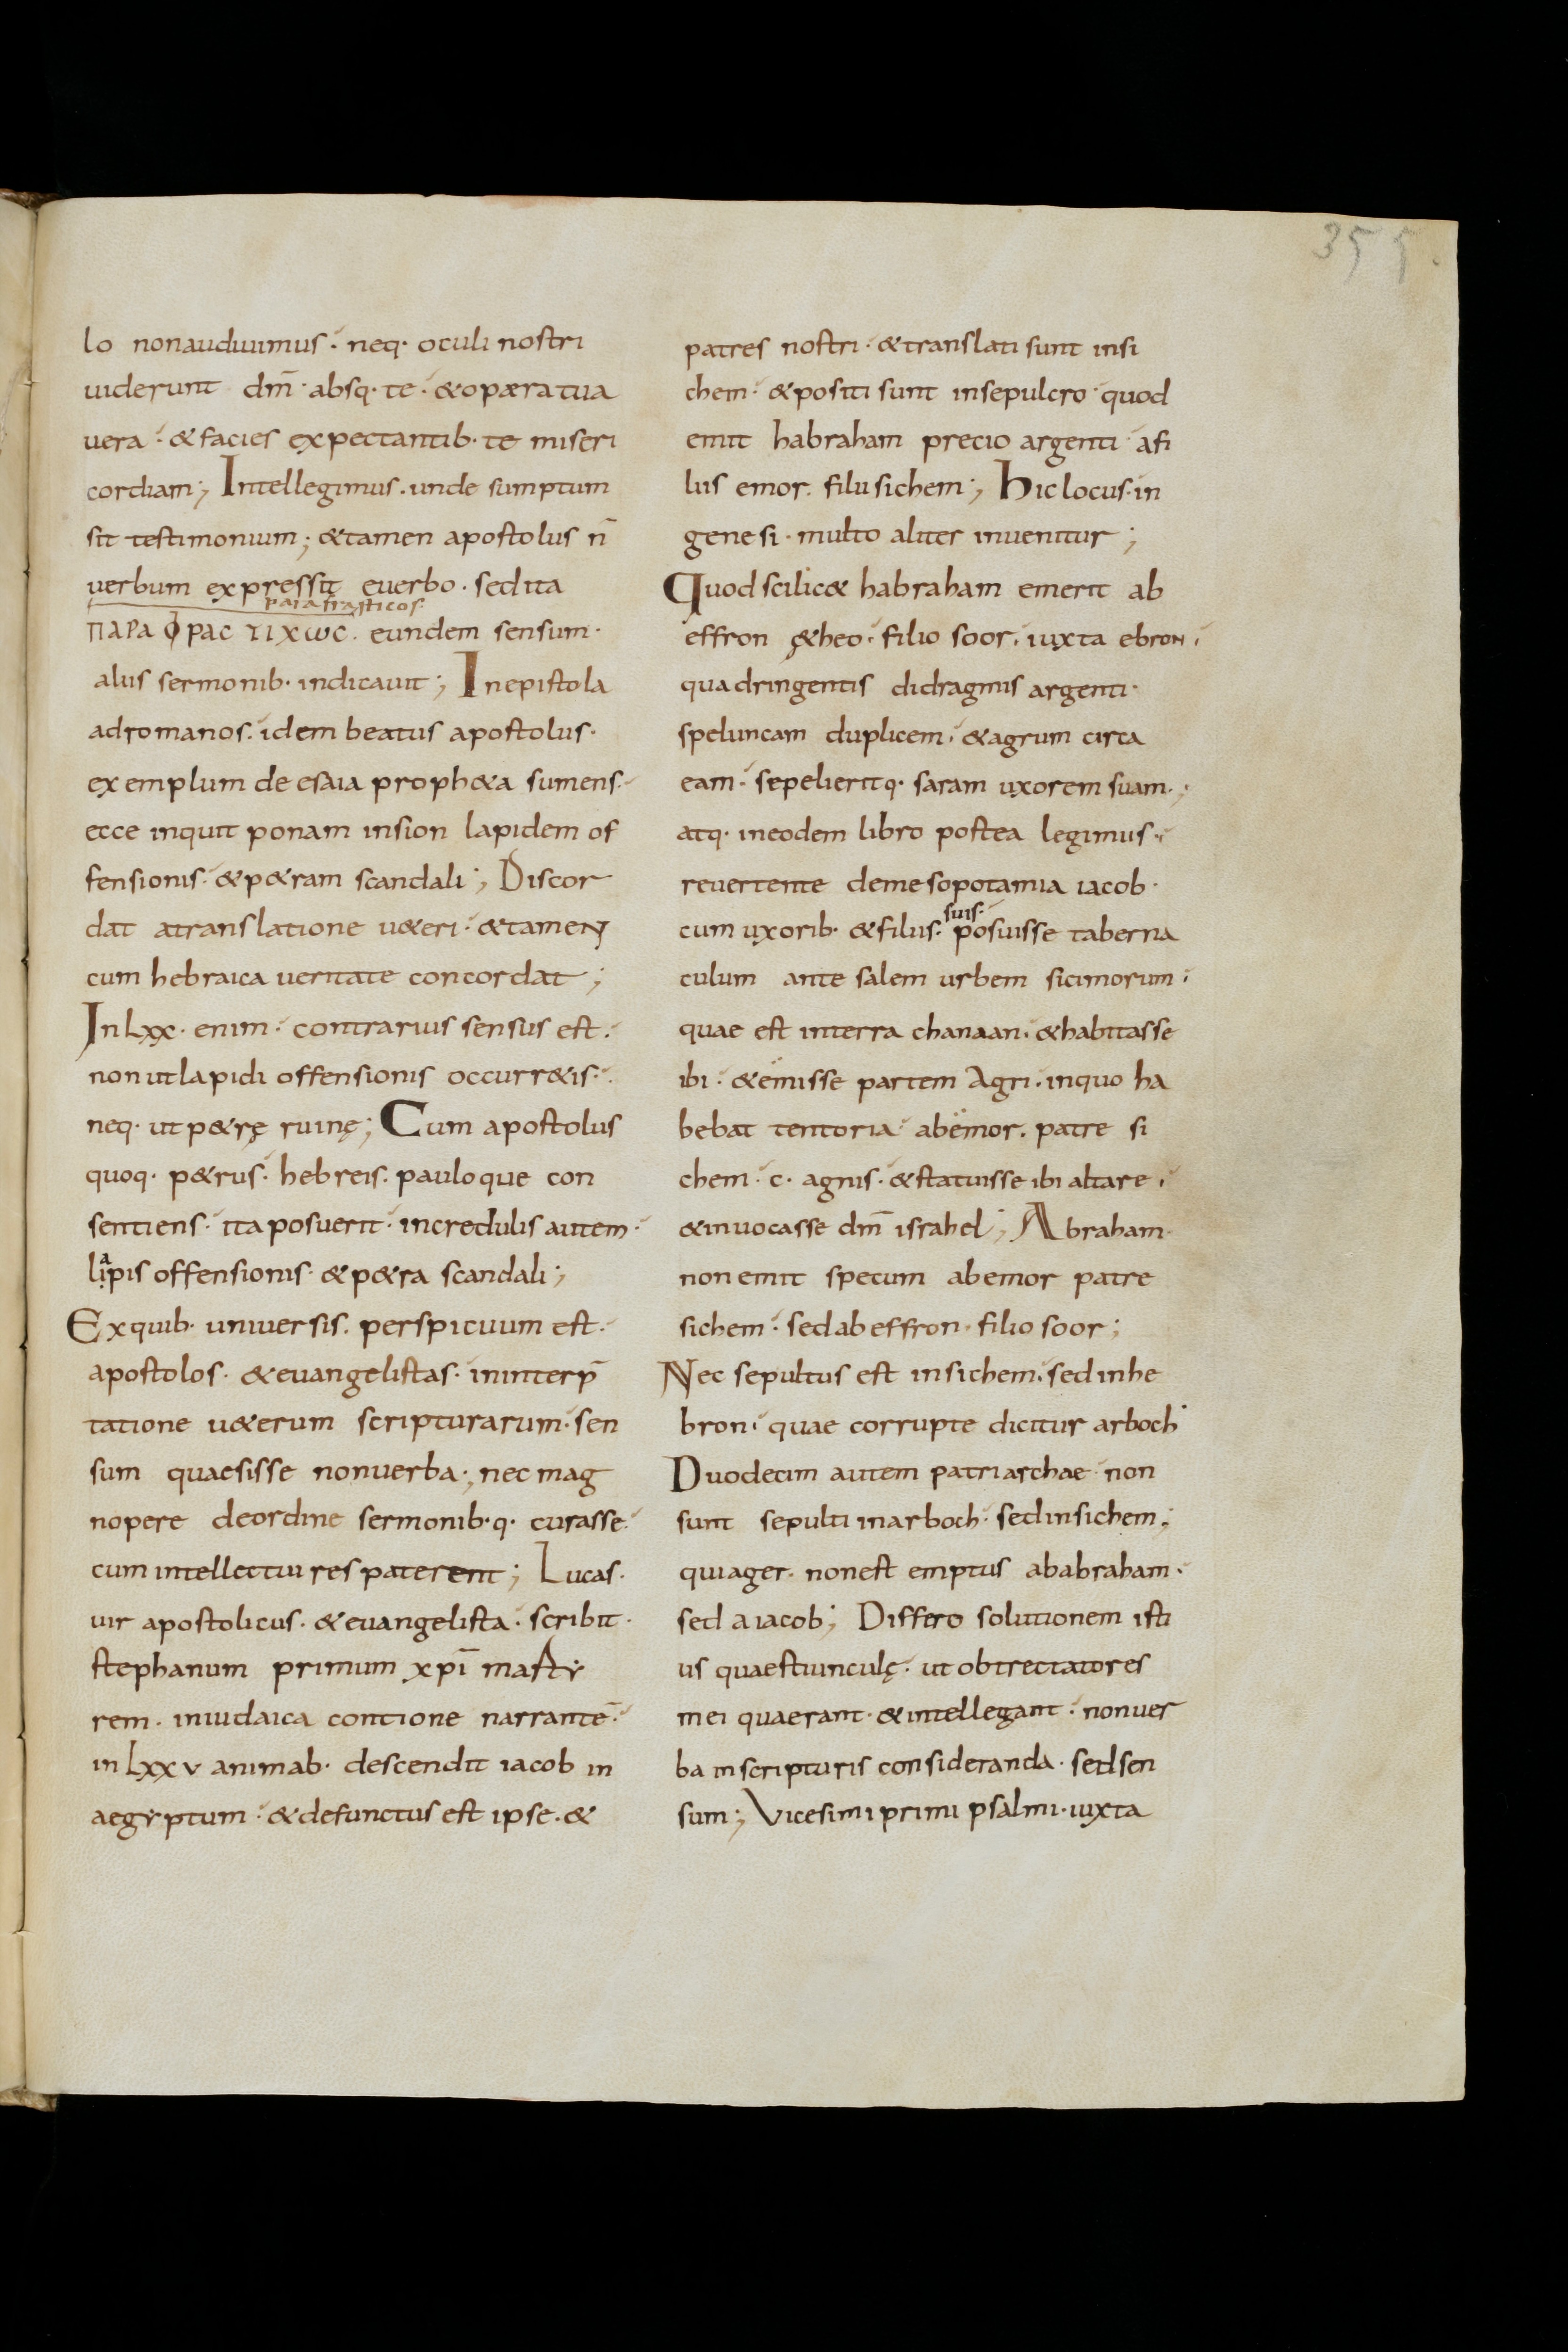 355.
lo nonaudiuimus · neq· oculi nostri
uiderunt dm̄ · absq· te · &opæra tua
uera · &facies expectantib· te miseri
cordiam ; Intellegimus . unde sumptum
sit testimonium ; &tamen apostolus n̄
uerbum expressit euerbo · sed ita
parafrasticos ·
ΠΑΡΑ ΦΡΑC ΤΙΧωC . eundem sensum ·
aliis sermonib· indicauit ; In epistola
adromanos . idem beatus apostolus ·
exemplum de esaia proph&a sumens ·
ecce inquit ponam insion lapidem of
fensionis · &p&ram scandali ; Discor
dat atranslatione u&eri · &tamen
cum hebraica ueritate concordat ;
In Lxx · enim · contrarius sensus est .
non utlapidi offensionis occurr&is ·
neq· ut p&rę ruinę ; Cum apostolus
quoq· p&rus · hebreis . pauloque con
sentiens · ita posuerit · incredulis autem ·
a
lipis offensionis · &p&ra scandali ;
Exquib· uniuersis . perspicuum est ·
apostolos · &euangelistas · ininterp̄
tatione u&erum scripturarum · sen
sum quaesisse nonuerba ; nec mag
nopere deordine sermonib· q· curasse ·
cum intellectui res paterent ; Lucas ·
uir apostolicus · &euangelista · scribit ·
stephanum primum xp̄i marty
rem . iniudaica contione narrantē ·
in Lxxv animab· descendit iacob in
aegyptum · &defunctus est ipse . &
patres nostri · &translati sunt insi
chem · &positi sunt insepulcro · quod
emit habraham precio argenti afi
liis emor . filii sichem ; Hic locus · in
genesi · multo aliter inuenitur ;
Quod scilic& habraham emerit ab
effron &heo · filio soor . iuxta ebron ·
quadringentis didragmis argenti ·
speluncam duplicem · &agrum circa
eam · sepelieritq· saram uxorem suam ;
atq· ineodem libro postea legimus ·
reuertente demesopotamia iacob ·
suis ·
cum uxorib· &filiis · posuisse taberna
culum ante salem urbem sicimorum ·
quae est interra chanaan . &habitasse
ibi · &emisse partem Agri · inquo ha
bebat tentoria · abemor . patre si
chem · c · agnis · &statuisse ibi altare ·
&inuocasse dm̄ israhel ; Abraham ·
non emit specum abemor patre
sichem · sed ab effron · filio soor ;
Nec sepultus est insichem . sed inhe
bron · quae corrupte dicitur arboch ·
Duodecim autem patriarchae non
sunt sepulti inarboch · sed insichem ;
qui ager · nonest emptus ababraham ·
sed a iacob ; Differo solutionem isti
us quaestiunculę · ut obtrectatores
mei quaerant · &intellegant · nonuer
ba inscripturis consideranda · sed sen
sum ; Vicesimi primi psalmi · iuxta